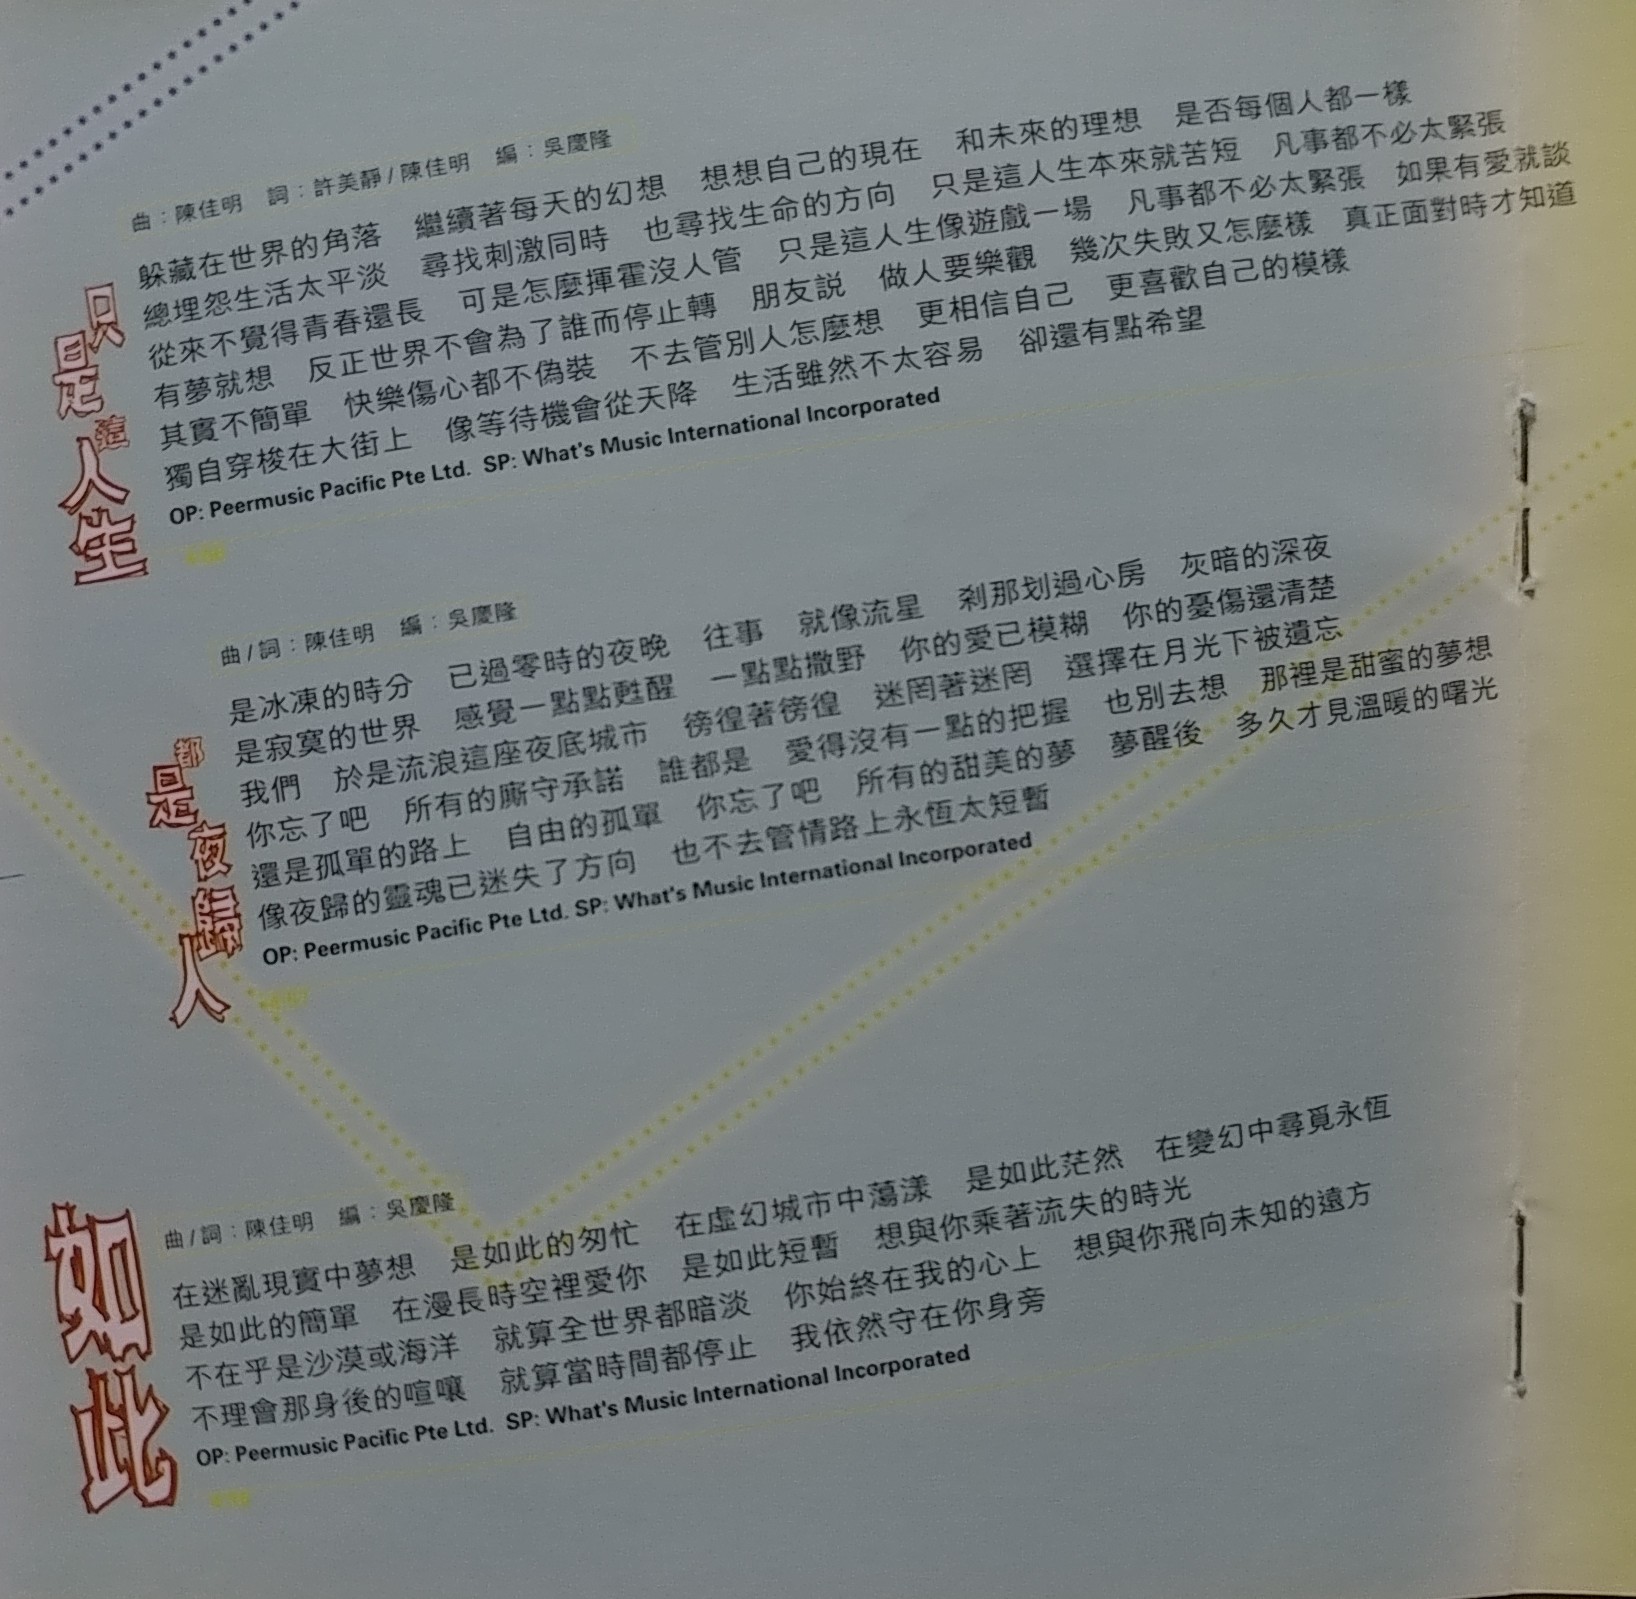 只是這人生
曲：陳佳明　詞：許美靜/陳佳明　編：吳慶隆
躲藏在世界的角落　繼續著每天的幻想　想想自己的現在　和未來的理想　是否每個人都一樣
總埋怨生活太平淡　尋找刺激同時　也尋找生命的方向　只是這人生本來就苦短　凡事都不必太緊張
從來不覺得青春還長　可是怎麼揮霍沒人管　只是這人生像遊戲一場　凡事都不必太緊張　如果有愛就談
有夢就想　反正世界不會為了誰而停止轉　朋友說　做人要樂觀　幾次失敗又怎麼樣　真正面對時才知道
其實不簡單　快樂傷心都不偽裝　不去管別人怎麼想　更相信自己　更喜歡自己的模樣
獨自穿梭在大街上　像等待機會從天降　生活雖然不太容易　卻還有點希望
OP: Peermusic Pacific Pte Ltd. SP: What's Music International Incorporated
都是夜歸人
曲/詞：陳佳明　編：吳慶隆
是冰凍的時分　已過零時的夜晚　往事　就像流星　剎那划過心房　灰暗的深夜
是寂寞的世界　感覺一點點甦醒　一點點撒野　你的愛已模糊　你的憂傷還清楚
我們　於是流浪這座夜底城市　徬徨著徬徨　迷罔著迷罔　選擇在月光下被遺忘
你忘了吧　所有的廝守承諾　誰都是　愛得沒有一點的把握　也別去想　那裡是甜蜜的夢想
還是孤單的路上　自由的孤單　你忘了吧　所有的甜美的夢　夢醒後　多久才見溫暖的曙光
像夜歸的靈魂已迷失了方向　也不去管情路上永恆太短暫
OP: Peermusic Pacific Pte Ltd. SP: What's Music International Incorporated
如此
曲/詞：陳佳明　編：吳慶隆
在迷亂現實中夢想　是如此的匆忙　在虛幻城市中蕩漾　是如此茫然　在變幻中尋覓永恆
是如此的簡單　在漫長時空裡愛你　是如此短暫　想與你乘著流失的時光
不在乎是沙漠或海洋　就算全世界都暗淡　你始終在我的心上　想與你飛向未知的遠方
不理會那身後的喧嚷　就算當時間都停止　我依然守在你身旁
OP: Peermusic Pacific Pte Ltd. SP: What's Music International Incorporated